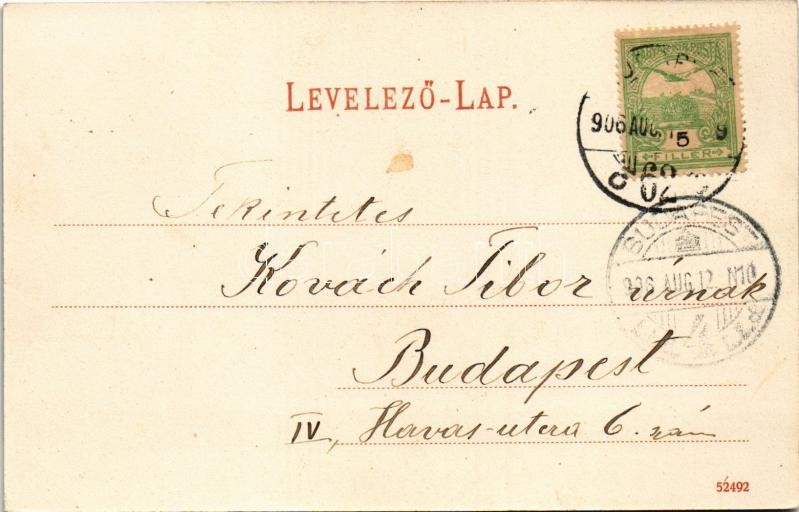 LEVELEZŐ-LAP.
906 AUG.
5
FILLER
62
BUDAPEST
906 AUG 12 N10
4
Tekintetes
Kovách Tibor úrnak
Budapest
IV, Havas-utcza 6. szám
52492